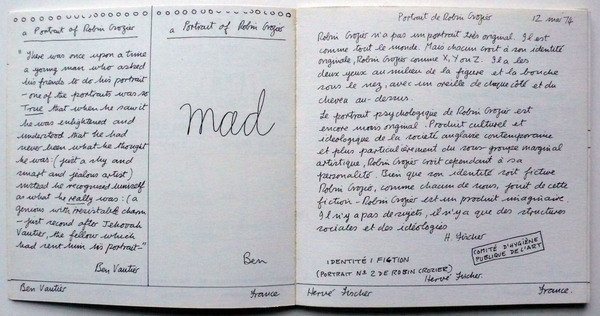 a Portrait of Robin Crozier
"There was once upon a time
a young man who asked
his friends to do his portrait
- one of the portraits was so
True that when he saw it
he was enlightened and
understood that he had
never been what he thought
he was: (just a shy and
smart and jealous artist)
instead he recognised himself
as what he really was: (a
genious with irresistable charm
- just second after Jehovah
Vautier, the fellow which
had sent him his portrait-"
Ben Vautier
Ben Vautier
a Portrait of Robin Crozier
mad
Ben
France
Portrait de Robin Crozier 12 mai 74
Robin Crozier n'a pas un portrait très original. Il est
comme tout le monde. Mais chacun croit à son identité
originale, Robin Crozier comme X, Y ou Z. Il a les
deux yeux au milieu de la figure et la bouche
sous le nez, avec un oreille de chaque côté et du
cheveu au-dessus.
Le portrait psychologique de Robin Crozier est
encore moins original. Produit culturel et
idéologique de la société anglaise contemporaine
et plus particulièrement du sous-groupe marginal
artistique, Robin Crozier croit cependant à sa
personalité. Bien que son identité soit fictive
Robin Crozier, comme chacun de nous, jouit de cette
fiction - Robin Crozier est un produit imaginaire.
Il n'y a pas de sujets, il n'y a que des structures
sociales et des idéologies
H. Fischer
COMITÉ D'HYGIÈNE
PUBLIQUE DE L'ART
IDENTITÉ: FICTION
(PORTRAIT No 2 DE ROBIN CROZIER)
Hervé Fischer.
Hervé Fischer France.